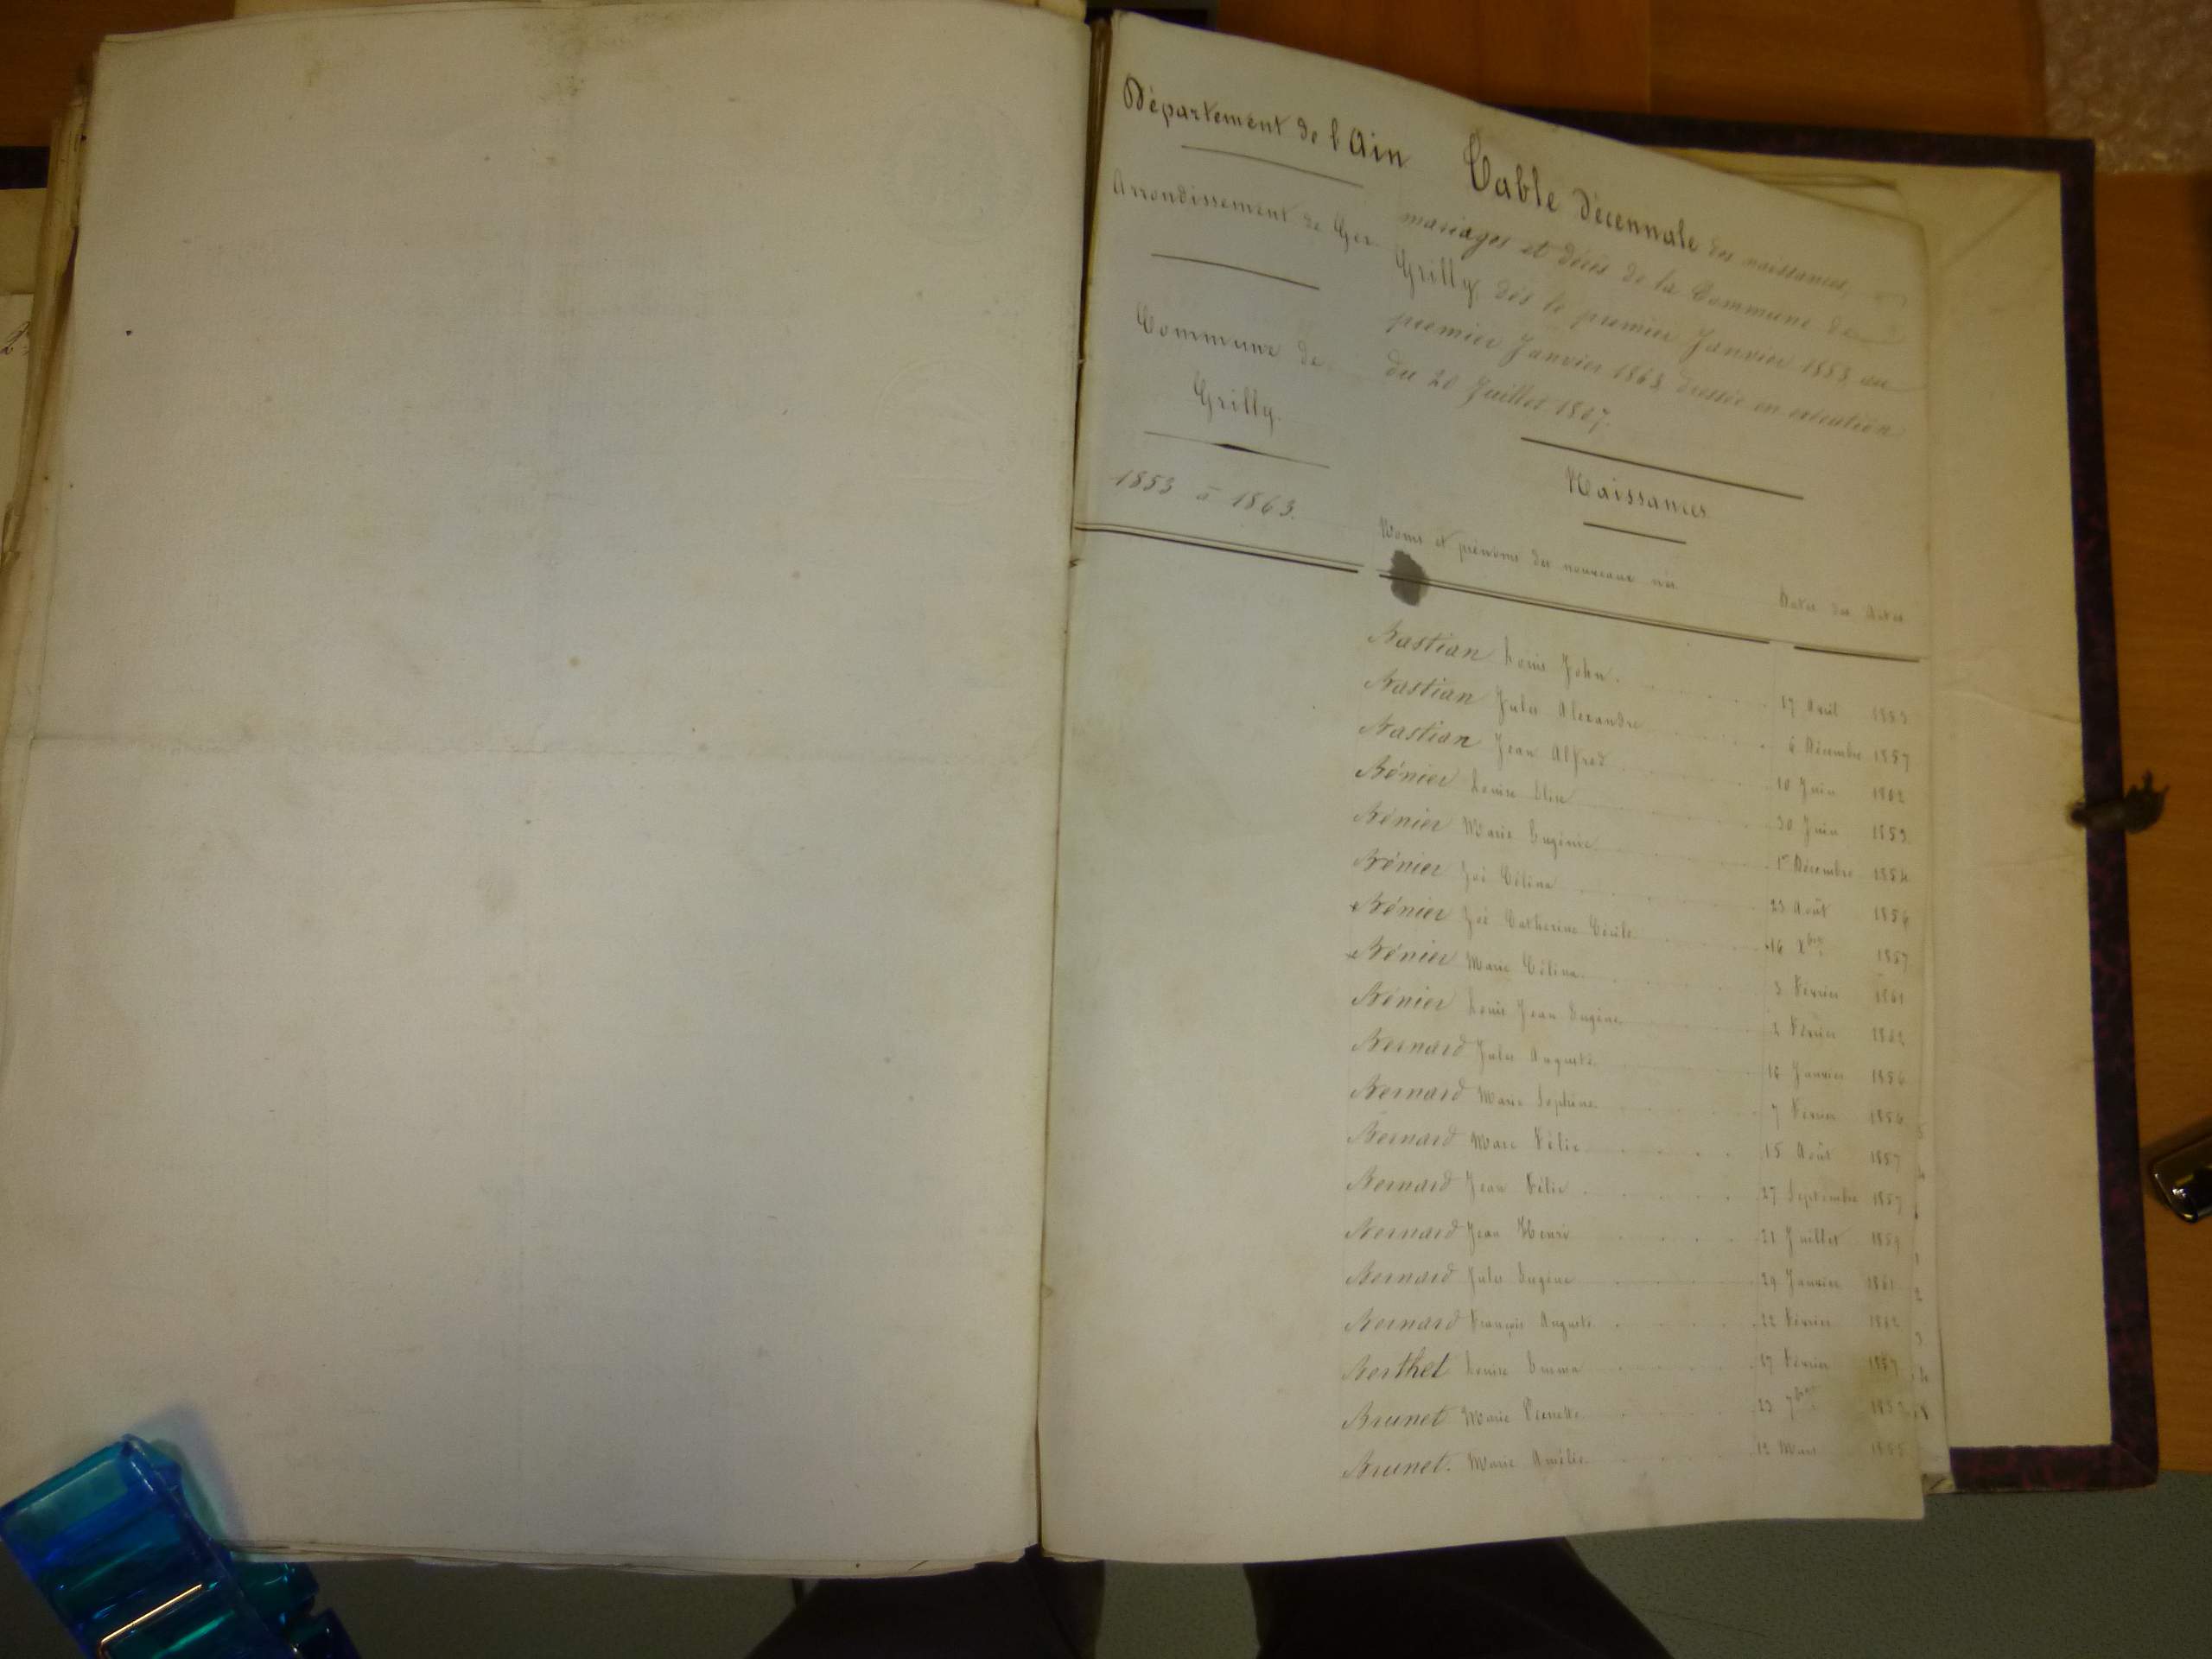 Département de l'Ain
Arrondissement de Gex
Commune de
Grilly.
1853 à 1863.
Table décennale des naissances,
mariages et décès de la Commune de
Grilly, dès le premier Janvier 1853, au
premier Janvier 1863, dressée en exécution
du 20 Juillet 1807.
Naissances
Noms et prénoms des nouveaux nés Dates des Actes
Bastian Louis John 17 Avril 1853
Bastian Jules Alexandre 6 Décembre 1857
Bastian Jean Alfred 10 Juin 1862
Bénier Louise Elise 30 Juin 1853
Bénier Marie Eugénie 1er Décembre 1854
Bénier Zoé Célina 23 Août 1856
Bénier Zoé Catherine Cécile 16 Xbre 1857
Bénier Marie Célina 3 Février 1861
Bénier Louis Jean Eugène Février 1862
Bernard Jules Auguste 16 Janvier 1856
Bernard Marie Joséphine 7 Février 1856
Bernard Marc Félix 15 Août 1857
Bernard Jean Félix 27 Septembre 1857
Bernard Jean Henri 21 Juillet 1859
Bernard Jules Eugène 29 Janvier 1861
Bernard François Auguste 22 Février 1862
Berthet Louise Emma 17 Février 1857
Brunet Marie Pernette 23 7bre
Brunet. Marie Amélie 12 Mars 1855